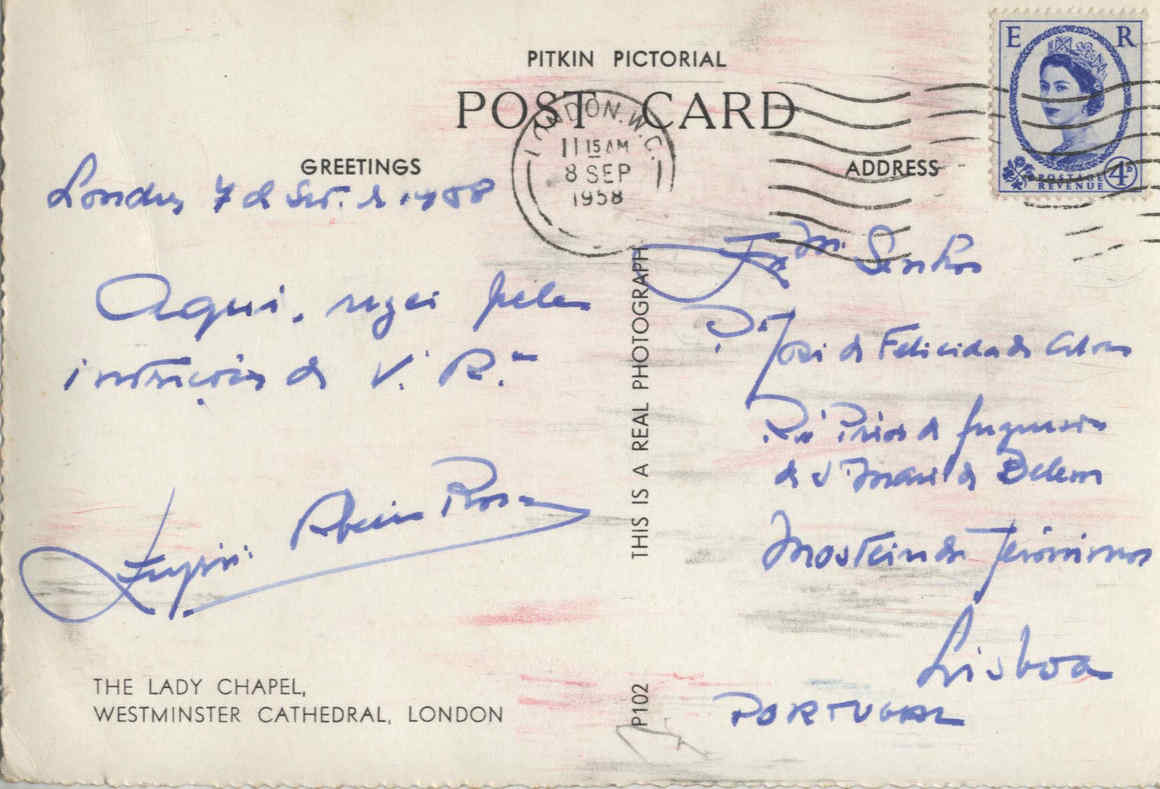 PITKIN PICTORIAL
POST CARD
GREETINGS
ADDRESS
E R
POSTAGE
REVENUE
4D
LONDON. W.C.
11 15 AM
8 SEP
1958
Londres, 7 de Set. de 1958
Aqui, rezei pelas
intenções de V. R.
Ribeiro Rosa
THIS IS A REAL PHOTOGRAPH
P102
THE LADY CHAPEL,
WESTMINSTER CATHEDRAL, LONDON
Exmo. Senhor
José da Felicidade Alves
Prior da freguesia
de S. Maria de Belém
Mosteiro dos Jerónimos
Lisboa
PORTUGAL